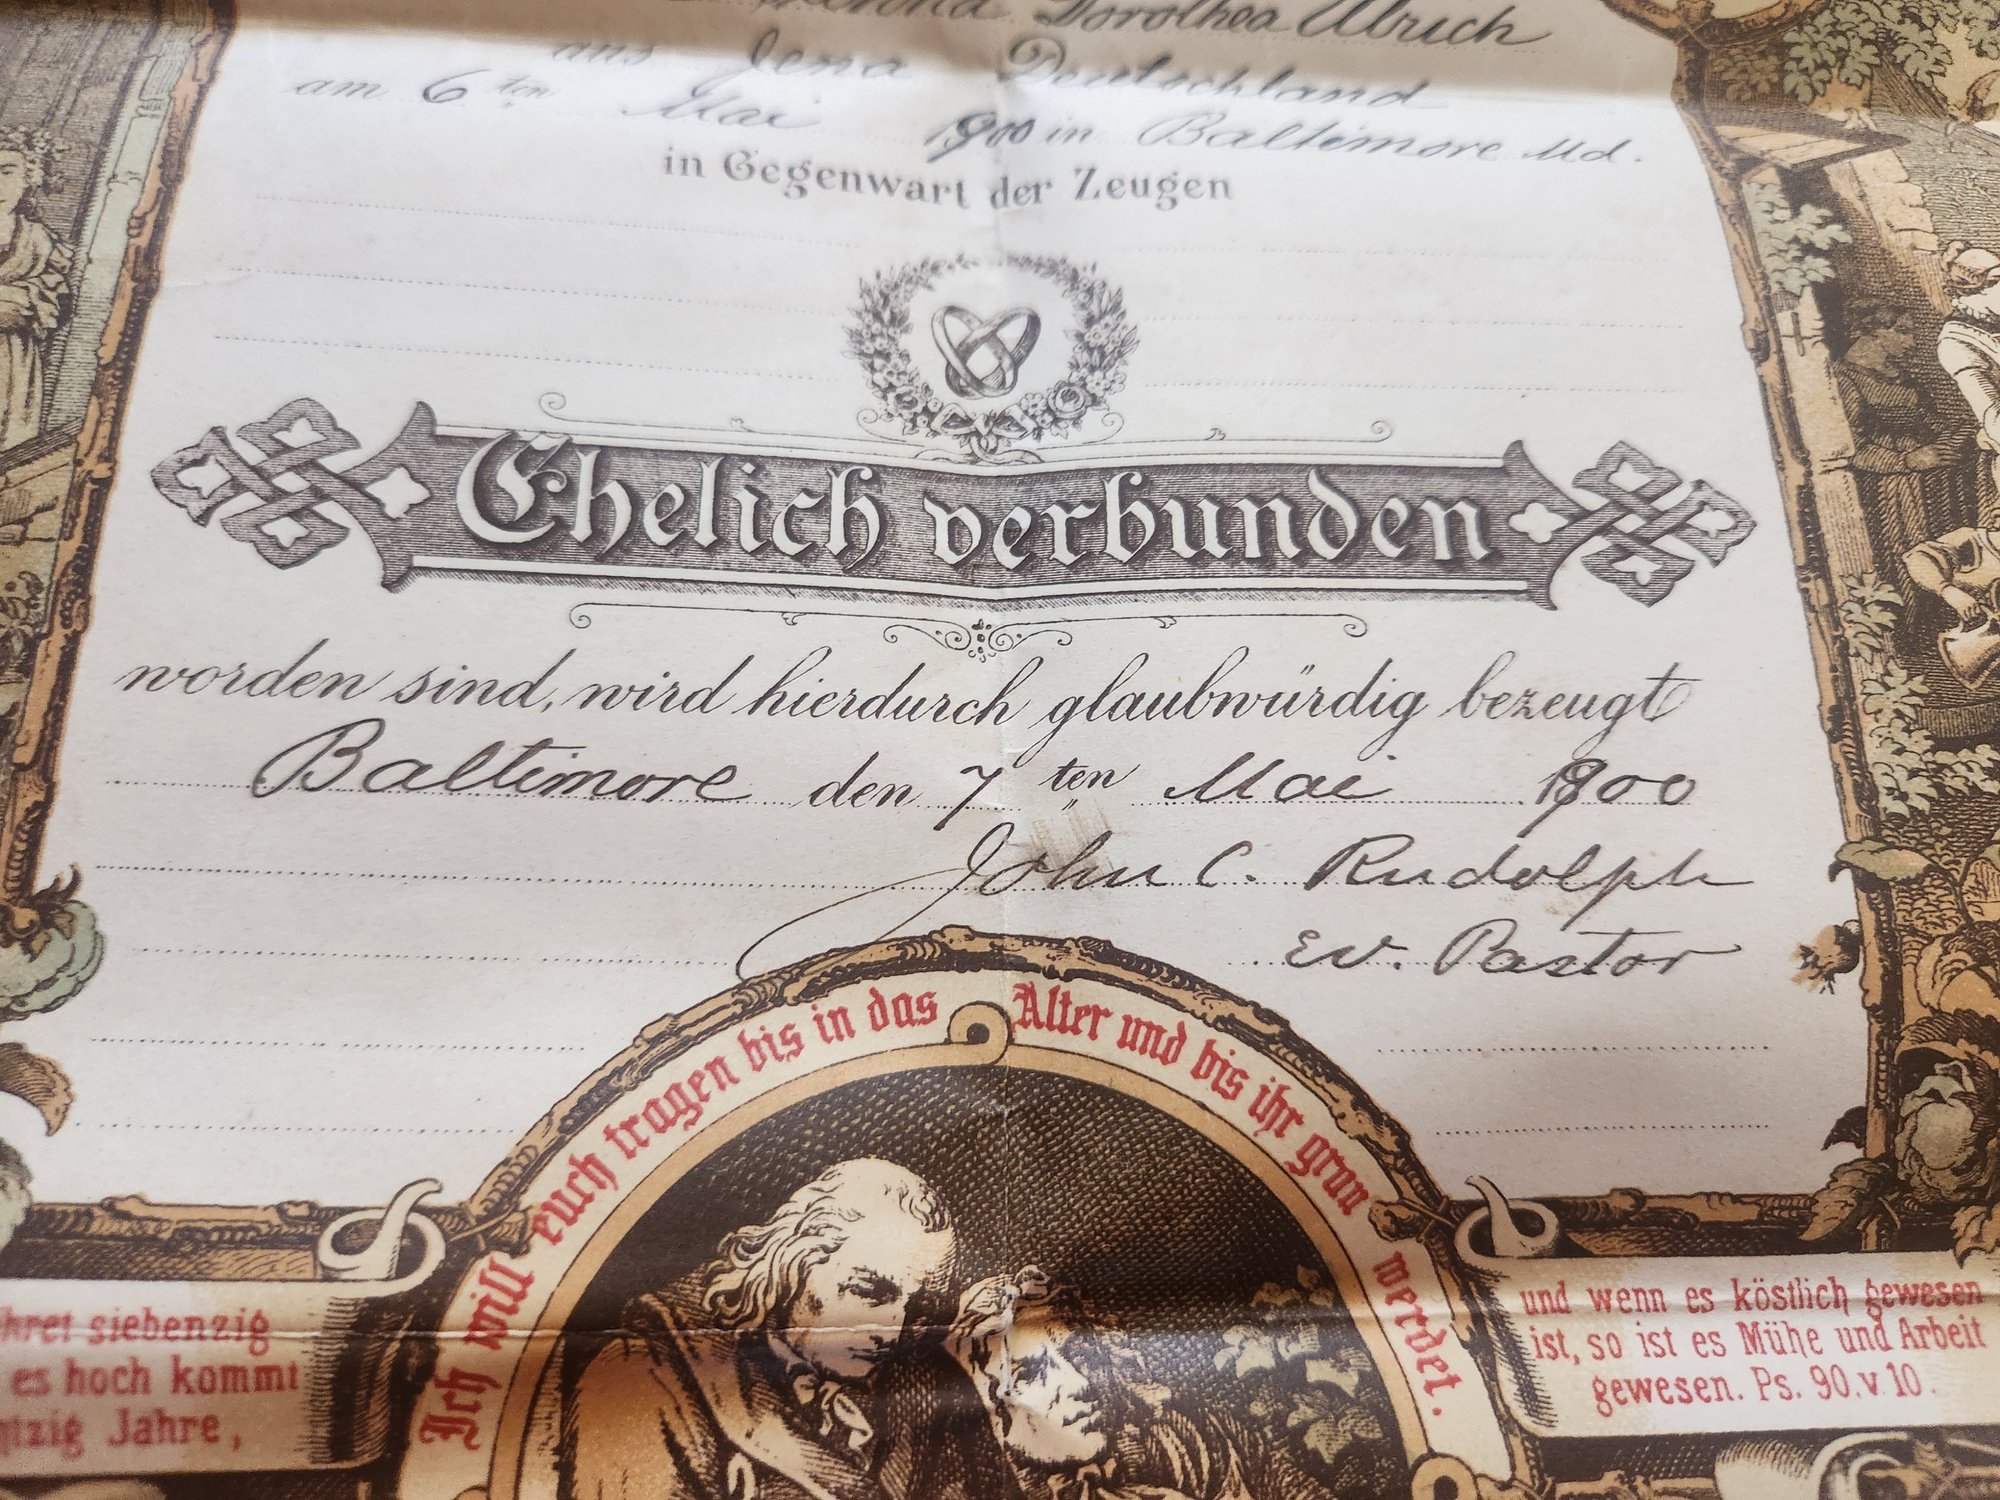 Dorothea Ulrich
aus Jena Deutschland
am 6ten Mai 1900 in Baltimore Md.
in Gegenwart der Zeugen
Ehelich verbunden
worden sind, wird hierdurch glaubwürdig bezeugt
Baltimore den 7ten Mai 1900
John C. Rudolph
Ev. Pastor
Ich will euch tragen bis in das Alter und bis ihr grau werdet.
siebenzig
es hoch kommt
Jahre,
und wenn es köstlich gewesen
ist, so ist es Mühe und Arbeit
gewesen. Ps. 90. v. 10.